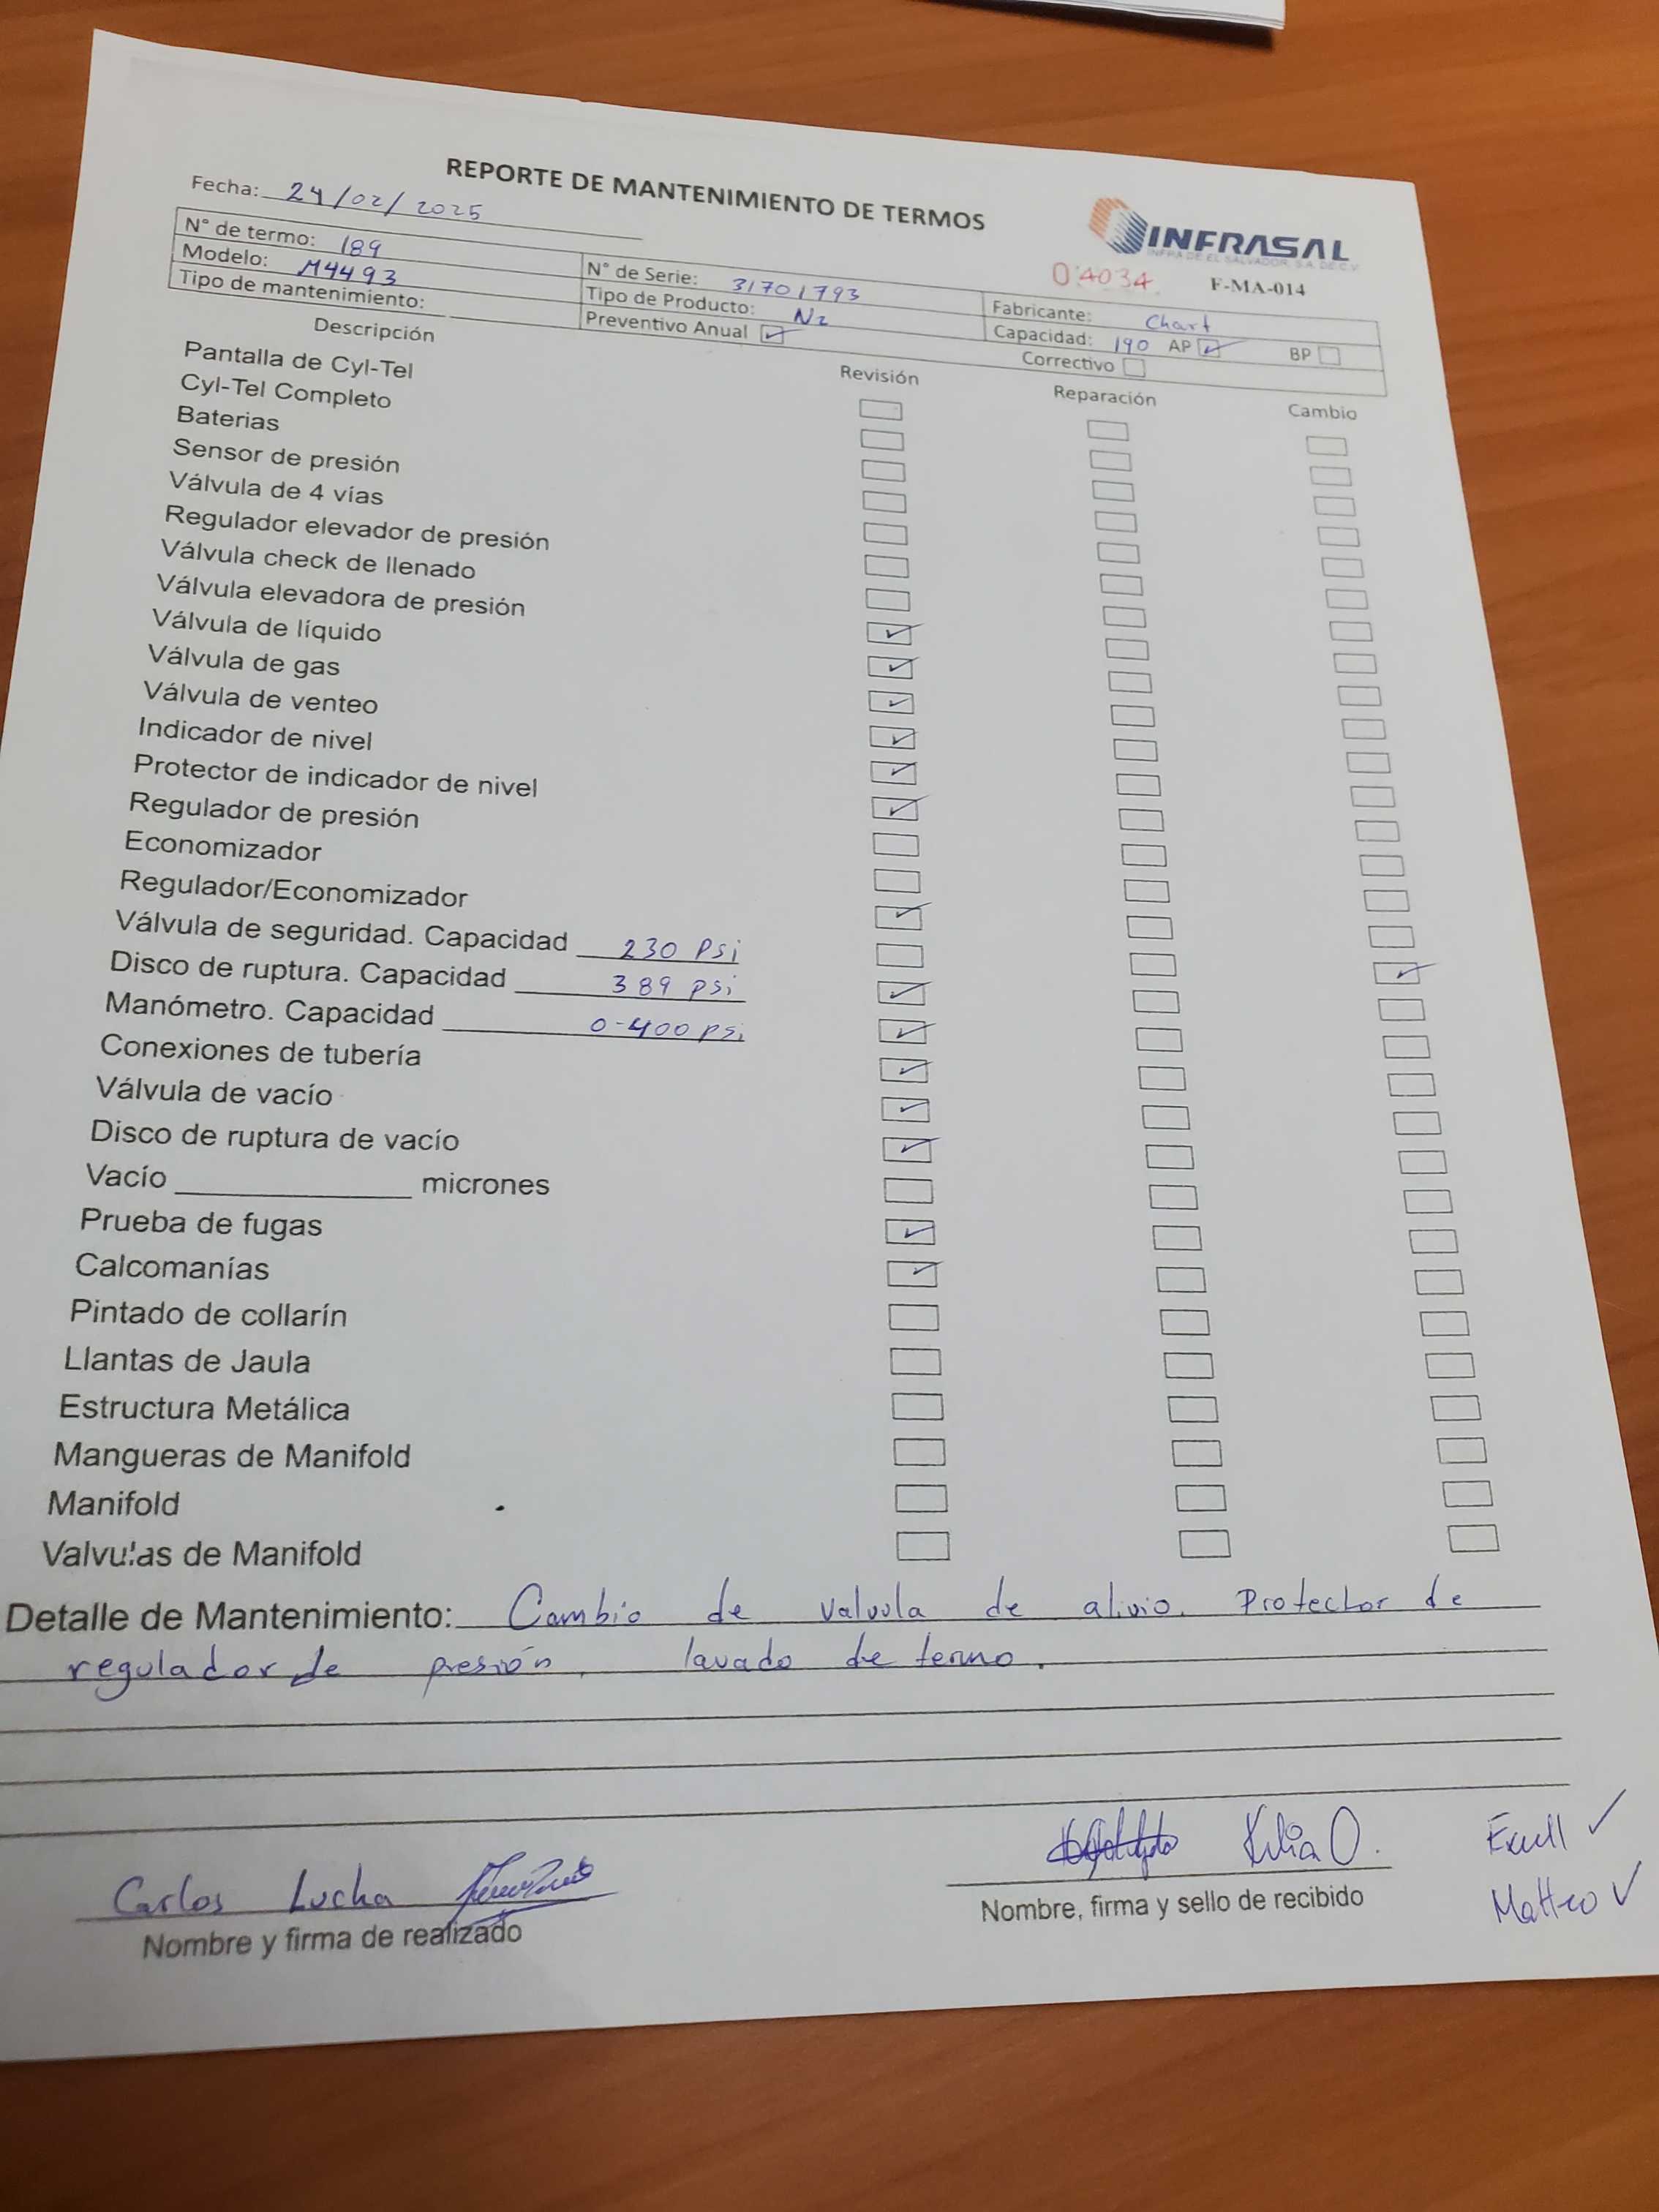 REPORTE DE MANTENIMIENTO DE TERMOS
INFRASAL
INFRA DE EL SALVADOR, S.A. DE C.V.
Fecha: 24/02/2025
04034 F-MA-014
N° de termo: 189
Modelo: M4493 N° de Serie: 31701793 Fabricante: Chart
Tipo de Producto: N2 Capacidad: 190 AP BP
Tipo de mantenimiento: Preventivo Anual Correctivo
Descripción Revisión Reparación Cambio
Pantalla de Cyl-Tel
Cyl-Tel Completo
Baterias
Sensor de presión
Válvula de 4 vías
Regulador elevador de presión
Válvula check de llenado
Válvula elevadora de presión
Válvula de líquido
Válvula de gas
Válvula de venteo
Indicador de nivel
Protector de indicador de nivel
Regulador de presión
Economizador
Regulador/Economizador
Válvula de seguridad. Capacidad 230 Psi
Disco de ruptura. Capacidad 389 psi
Manómetro. Capacidad 0-400 psi
Conexiones de tubería
Válvula de vacío
Disco de ruptura de vacío
Vacío micrones
Prueba de fugas
Calcomanías
Pintado de collarín
Llantas de Jaula
Estructura Metálica
Mangueras de Manifold
Manifold
Valvulas de Manifold
Detalle de Mantenimiento: Cambio de valvula de alivio. Protector de
regulador de presión, lavado de termo.
Carlos Lucha
Nombre y firma de realizado
Nombre, firma y sello de recibido
Matteo ✓